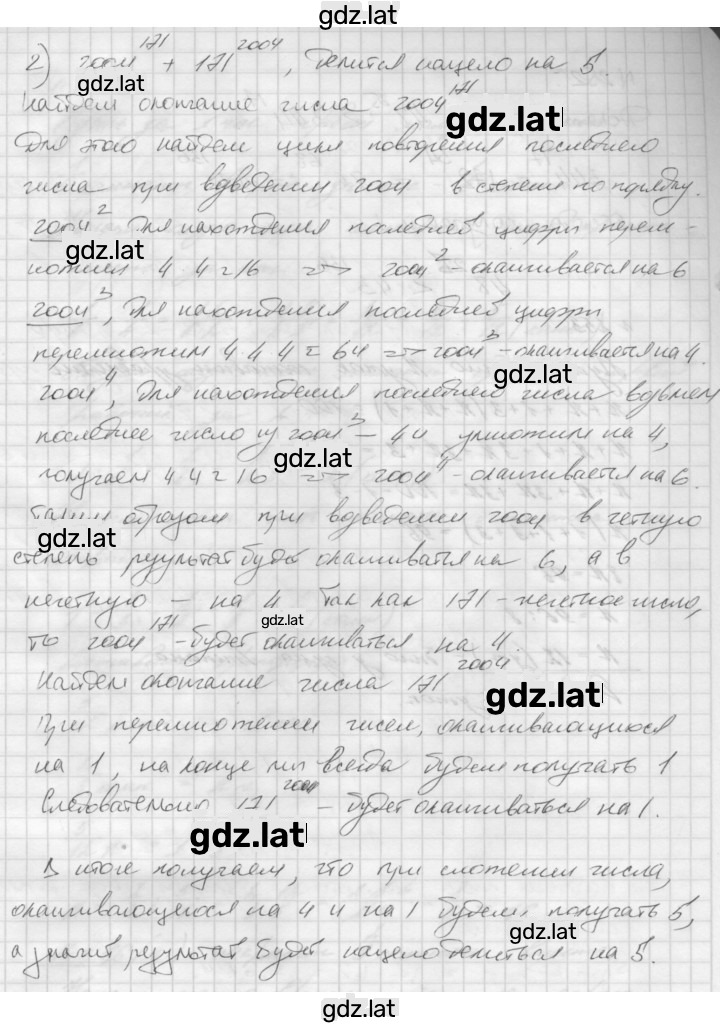 gdz.lat
2) 2004¹⁷¹ + 171²⁰⁰⁴, делится нацело на 5.
gdz.lat
Найдем окончание числа 2004¹⁷¹
gdz.lat
Для этого найдем цикл повторения последнего
числа при возведении 2004 в степени по порядку.
2004² Для нахождения последней цифры перем-
gdz.lat
ножим 4·4=16 => 2004² - оканчивается на 6
2004³, Для нахождения последней цифры
перемножим 4·4·4=64 => 2004³ - оканчивается на 4.
gdz.lat
2004⁴, Для нахождения последнего числа возьмем
последнее число из 2004³ - 4 и умножим на 4,
gdz.lat
получаем 4·4=16 => 2004⁴ - оканчивается на 6.
Таким образом при возведении 2004 в четную
gdz.lat
степень результат будет оканчиваться на 6, а в
нечетную - на 4. Так как 171 - нечетное число,
gdz.lat
то 2004¹⁷¹ - будет оканчиваться на 4.
Найдем окончание числа 171²⁰⁰⁴
gdz.lat
При перемножении чисел, оканчивающихся
на 1, на конце мы всегда будем получать 1
Следовательно 171²⁰⁰⁴ - будет оканчиваться на 1.
gdz.lat
В итоге получаем, что при сложении числа,
оканчивающегося на 4 и на 1 будем получать 5,
gdz.lat
а значит результат будет нацело делиться на 5.
gdz.lat